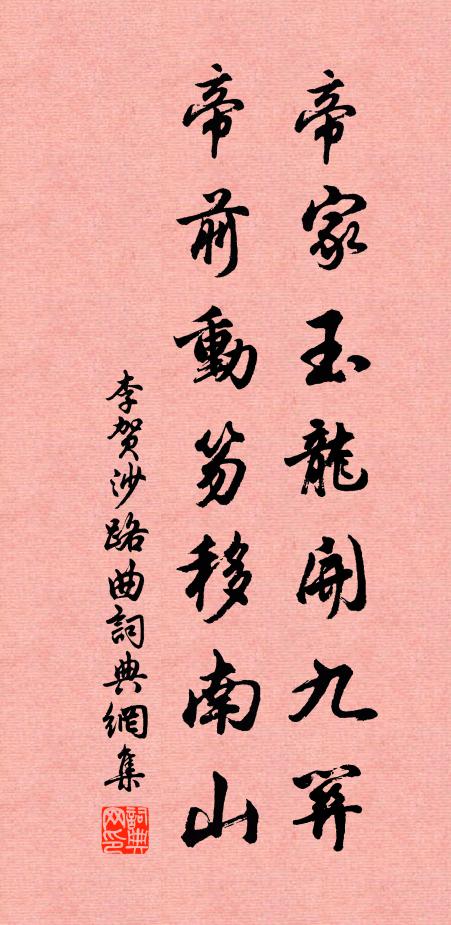 帝家玉龍開九關
帝前動笏移南山
李賀沙路曲詞典網集
詞典
网印